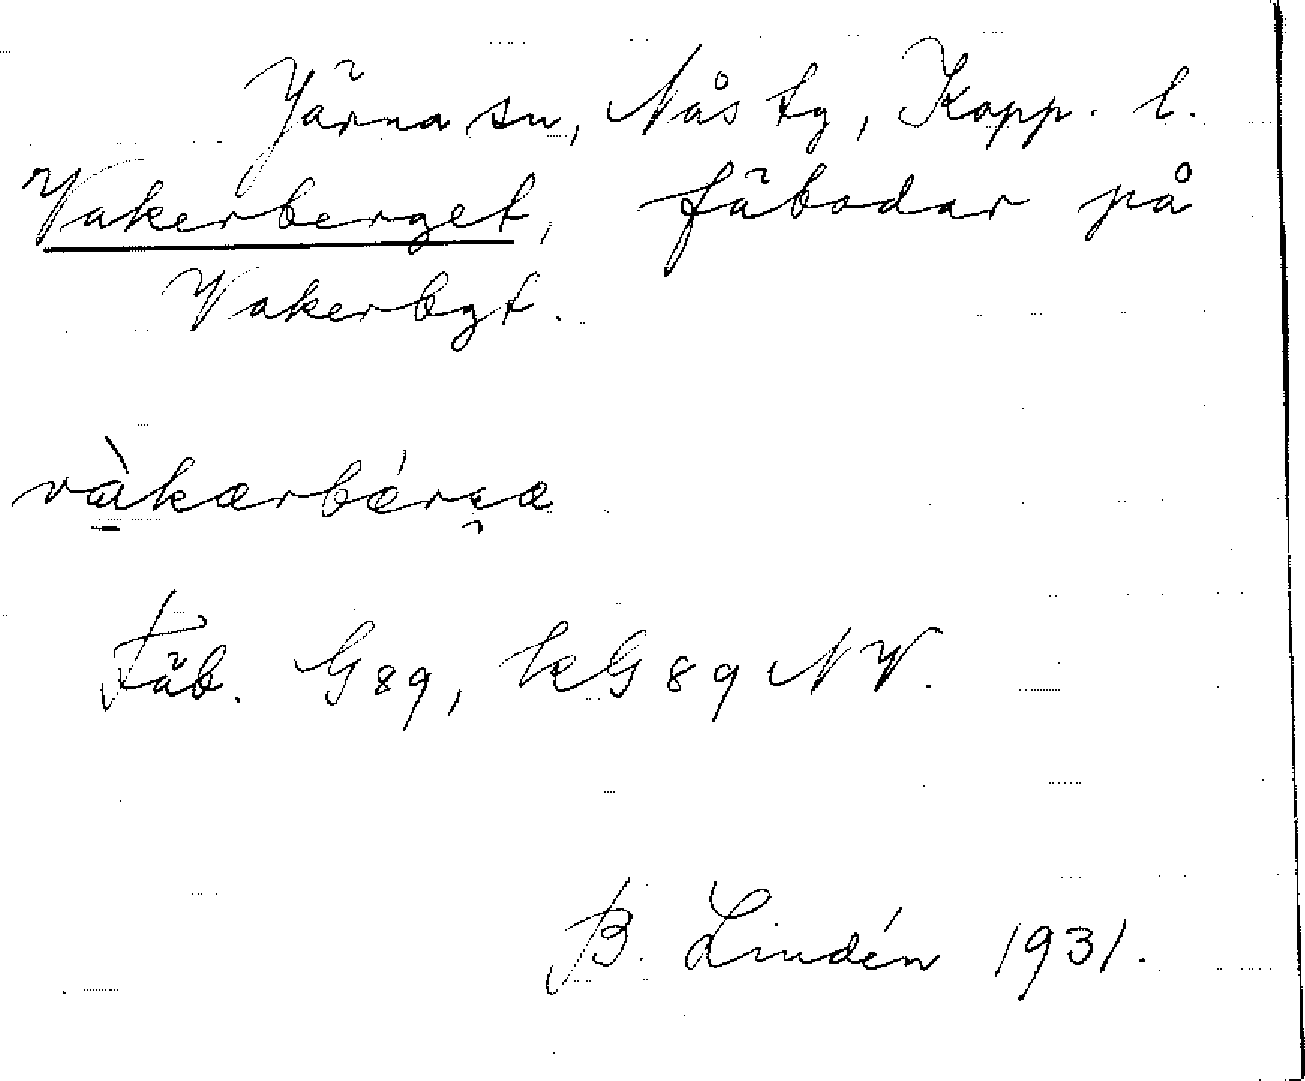 Järna sn, Nås tg, Kopp. l.
Vakerberget, fäbodar på
Vakerbgt.
vàkærbǽrɛæ
Fäb. G 89, kG 89 NV.
B. Lindén 1931.